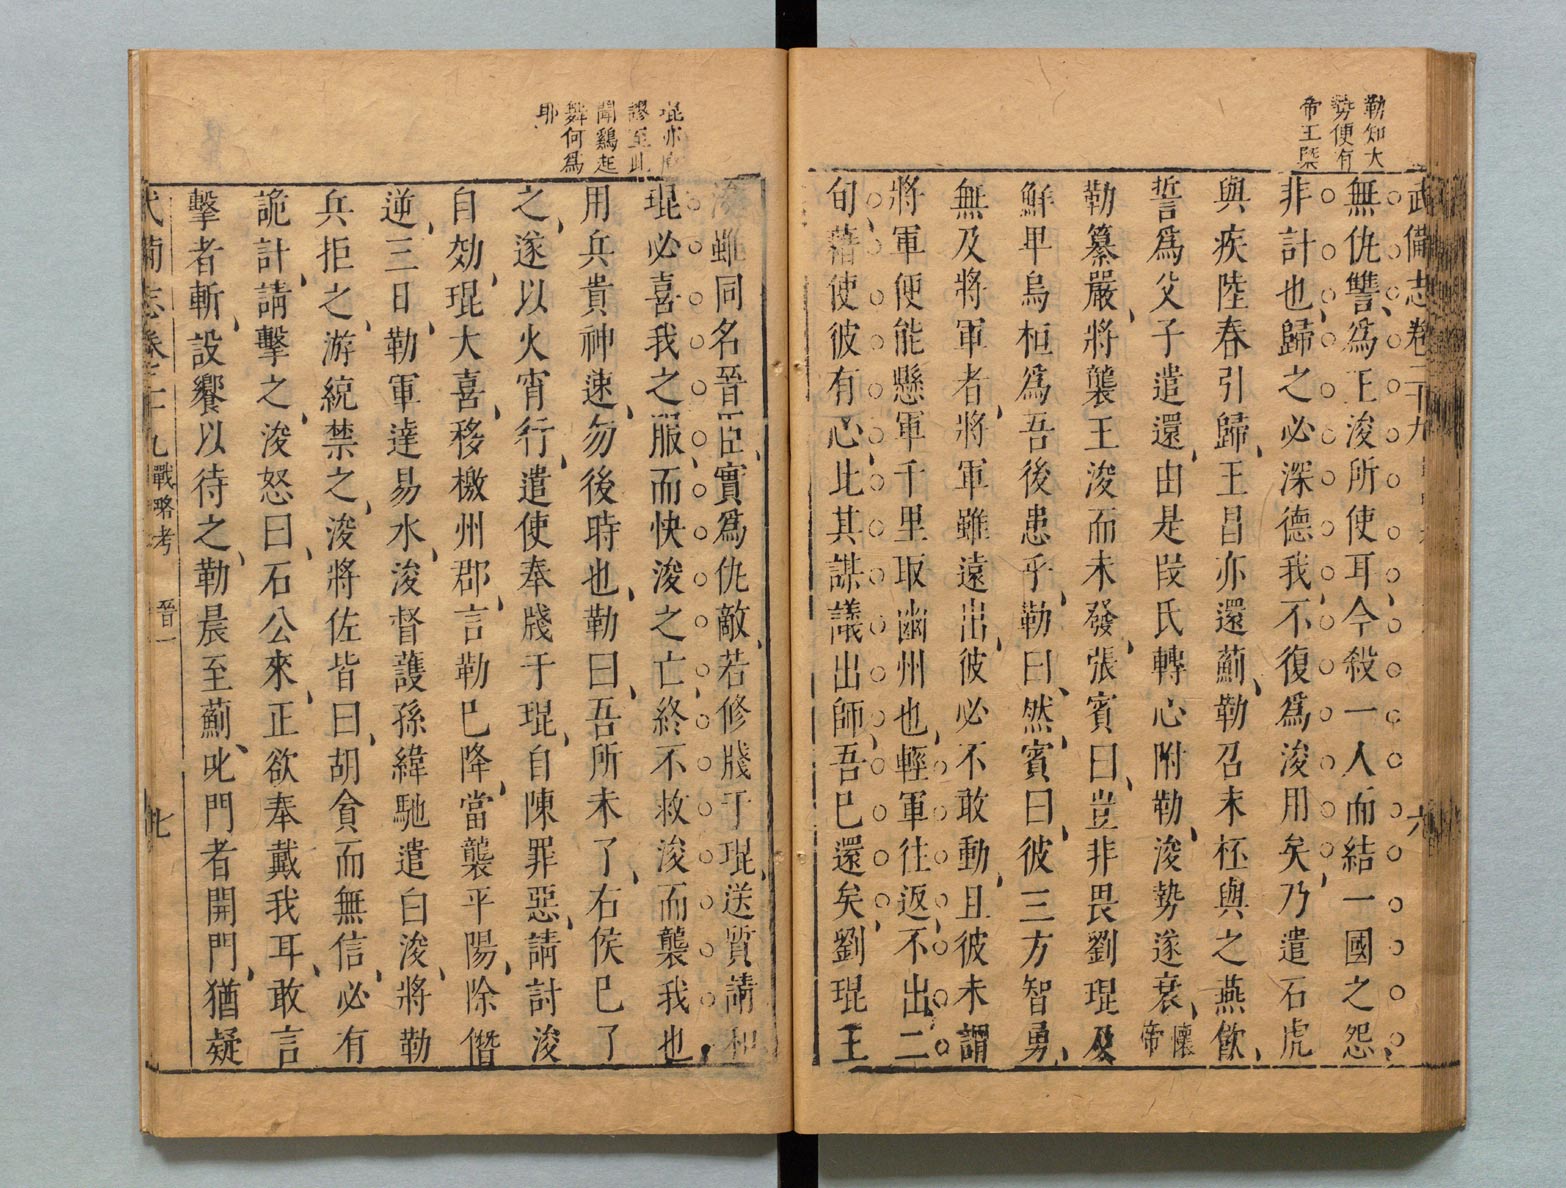 勒知大
勢便有
帝王槩
武備志卷二十九
六
無仇讐爲王浚所使耳今殺一人而結一國之怨
非計也歸之必深德我不復爲浚用矣乃遣石虎
與疾陸眷引歸王昌亦還薊勒召末柸與之燕飲
誓爲父子遣還由是段氏轉心附勒浚勢遂衰懷帝
勒纂嚴將襲王浚而未發張賓曰豈非畏劉琨及
鮮卑烏桓爲吾後患乎勒曰然賓曰彼三方智勇
無及將軍者將軍雖遠出彼必不敢動且彼未謂
將軍便能懸軍千里取幽州也輕軍往返不出二
旬藉使彼有心比其謀議出師吾已還矣劉琨王
琨亦
謬至此
聞鷄起
舞何爲
耶
浚雖同名晉臣實爲仇敵若修牋于琨送質請和
琨必喜我之服而快浚之亡終不救浚而襲我也
用兵貴神速勿後時也勒曰吾所未了右侯已了
之遂以火宵行遣使奉牋于琨自陳罪惡請討浚
自効琨大喜移檄州郡言勒已降當襲平陽除僭
逆三日勒軍達易水浚督護孫緯馳遣白浚將勒
兵拒之游統禁之浚將佐皆曰胡貪而無信必有
詭計請擊之浚怒曰石公來正欲奉戴我耳敢言
擊者斬設饗以待之勒晨至薊叱門者開門猶疑
武備志卷二十九 戰略考 晉一
七